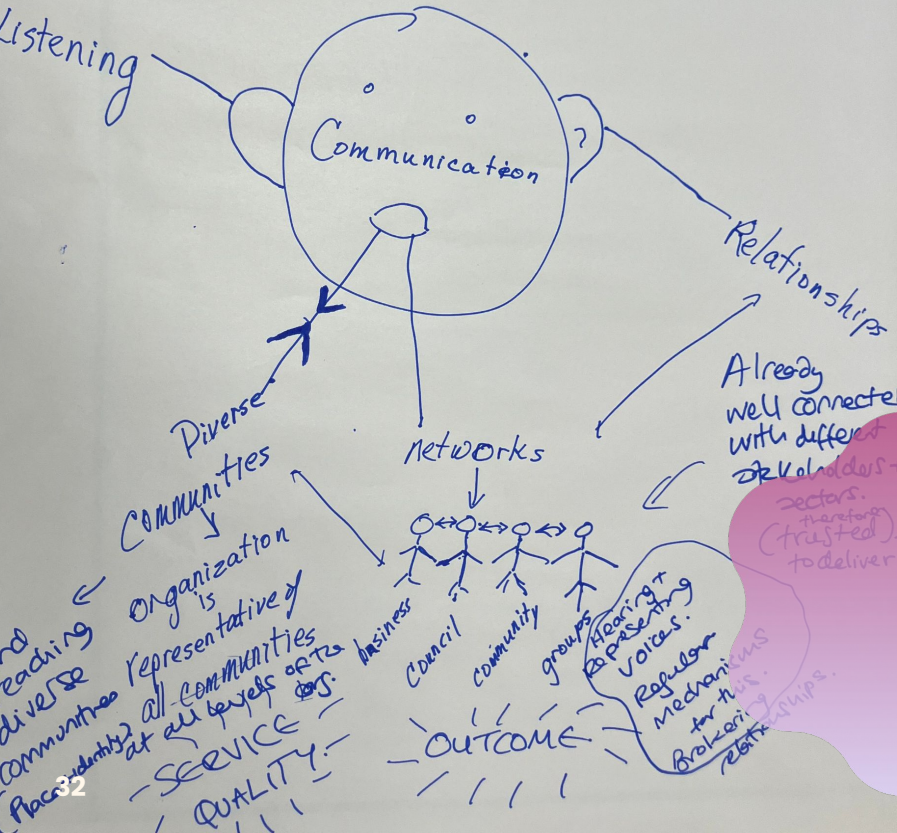 Listening
Communication
?
Relationships
Diverse
Communities
networks
Already
well connecte
with different
stakeholders-
sectors.
therefore
(trusted)
to deliver
organization
is
representative of
all communities
at all levels of the
org.
eaching
diverse
communities
business
Council
community
groups
Hearing +
Representing
voices.
Regular
Mechanisms
for this.
Brokering
relationships.
SERVICE
QUALITY
OUTCOME
32